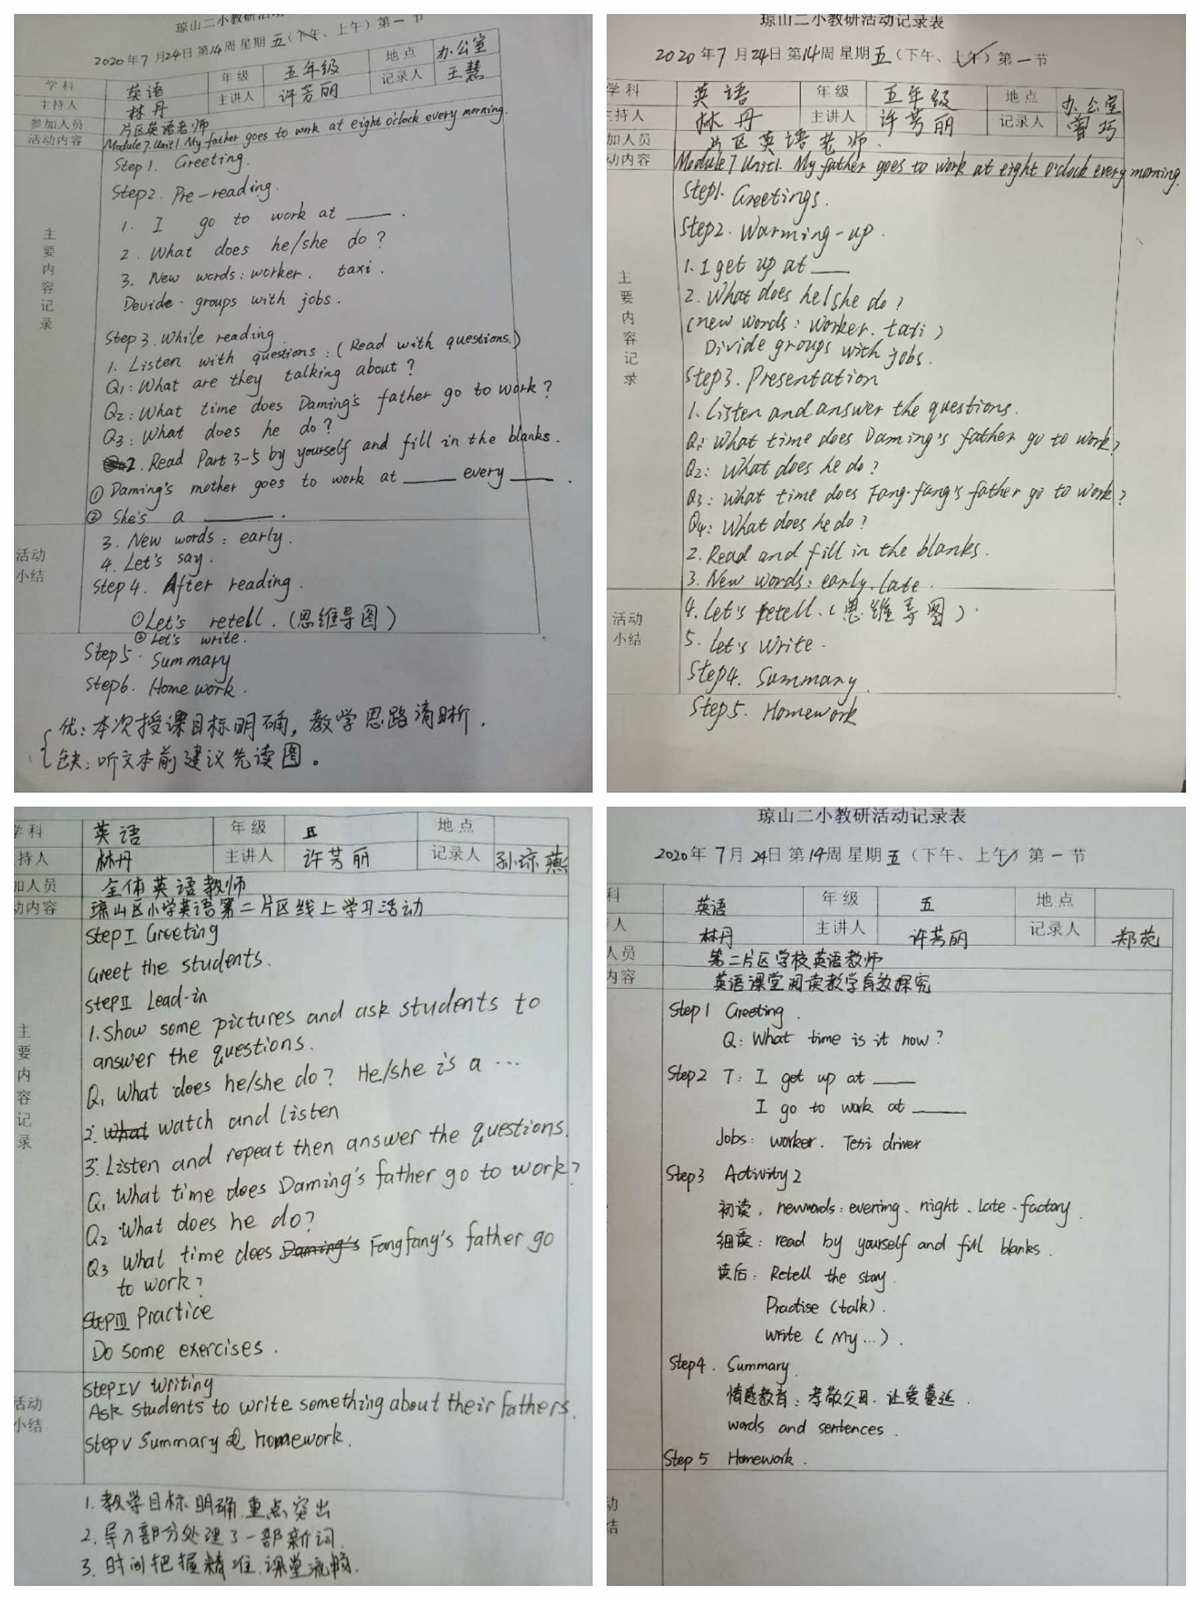 琼山二小教研活动
2020年7月24日第14周 星期五(下午、上午)第一节
学科 英语 年级 五年级 地点 办公室
主持人 林丹 主讲人 许芳丽 记录人 王慧
参加人员 片区英语老师
活动内容 Module 7 Unit1 My father goes to work at eight o'clock every morning.
主要内容记录
Step 1. Greeting.
Step2. Pre-reading.
1. I go to work at ____.
2. What does he/she do?
3. New words: worker. taxi.
Devide groups with jobs.
Step 3. While reading
1. Listen with questions: (Read with questions.)
Q1: What are they talking about?
Q2: What time does Daming's father go to work?
Q3: What does he do?
2. Read Part 3-5 by yourself and fill in the blanks.
① Daming's mother goes to work at ____ every ____.
② She's a ____.
活动小结
3. New words: early.
4. Let's say.
Step 4. After reading.
①Let's retell. (思维导图)
②Let's write.
Step5. Summary
Step6. Homework.
优:本次授课目标明确,教学思路清晰.
缺:听文本前建议先读图。
琼山二小教研活动记录表
2020年7月24日第14周 星期五(下午、上午)第一节
学科 英语 年级 五年级 地点 办公室
主持人 林丹 主讲人 许芳丽 记录人 曾巧
加人员 片区英语老师.
动内容 Module 7 Unit1. My father goes to work at eight o'clock every morning.
主要内容记录
Step1. Greetings.
Step2. Warming-up.
1. I get up at ____
2. What does he/she do?
(new words: worker. taxi)
Divide groups with jobs.
Step3. Presentation
1. Listen and answer the questions.
Q1: What time does Daming's father go to work?
Q2: What does he do?
Q3: What time does Fang fang's father go to work?
Q4: What does he do?
2. Read and fill in the blanks.
3. New words: early. late.
活动小结
4. Let's retell. (思维导图).
5. Let's write.
Step4. Summary.
Step5. Homework
学科 英语 年级 五 地点
持人 林丹 主讲人 许芳丽 记录人 孙琼燕
加人员 全体英语教师
动内容 琼山区小学英语第二片区线上学习活动
主要内容记录
Step I Greeting
Greet the students.
Step II Lead-in
1. Show some pictures and ask students to
answer the questions.
Q1 What does he/she do? He/she is a ...
2. What watch and listen
3. Listen and repeat then answer the questions.
Q1 What time does Daming's father go to work?
Q2 What does he do?
Q3 What time does Daming's Fangfang's father go
to work?
Step III Practice
Do some exercises.
活动小结
Step IV Writing
Ask students to write something about their fathers.
Step V Summary homework.
1. 教学目标明确.重点突出
2. 导入部分处理了一部新词.
3. 时间把握精准.课堂流畅.
琼山二小教研活动记录表
2020年7月24日第14周 星期五(下午、上午)第一节
科 英语 年级 五 地点
人 林丹 主讲人 许芳丽 记录人 郑苑
人员 第二片区学校英语教师
内容 英语课堂阅读教学有效探究
Step 1 Greeting.
Q: What time is it now?
Step2 T: I get up at ____
I go to work at ____
Jobs: worker. Texi driver
Step3 Activity 2
初读. newwords: evening. night. late. factory.
细读: read by yourself and fill blanks.
读后: Retell the stay.
Practise (talk).
write (My...).
Step4. Summary.
情感教育: 孝敬父母. 让爱蔓延.
words and sentences.
Step 5 Homework.
动
结